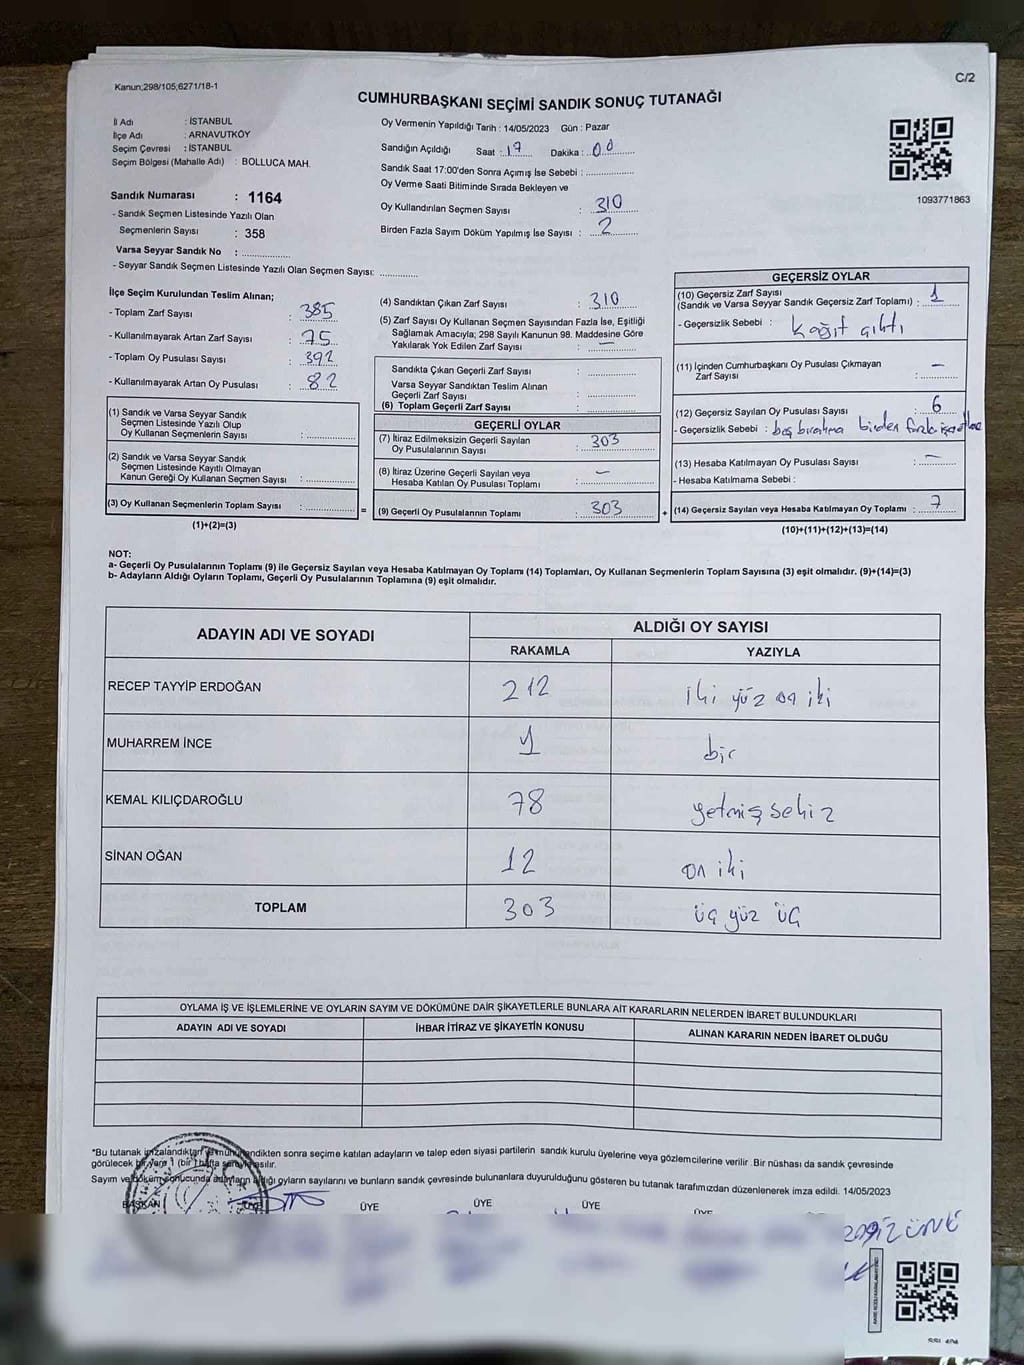 Kanun;298/105;6271/18-1
C/2
CUMHURBAŞKANI SEÇİMİ SANDIK SONUÇ TUTANAĞI
İl Adı : İSTANBUL
İlçe Adı : ARNAVUTKÖY
Seçim Çevresi : İSTANBUL
Seçim Bölgesi (Mahalle Adı) : BOLLUCA MAH.
Sandık Numarası : 1164
- Sandık Seçmen Listesinde Yazılı Olan
Seçmenlerin Sayısı : 358
Varsa Seyyar Sandık No : ..............
- Seyyar Sandık Seçmen Listesinde Yazılı Olan Seçmen Sayısı: ............
Oy Vermenin Yapıldığı Tarih : 14/05/2023 Gün : Pazar
Sandığın Açıldığı Saat : 17 Dakika : 00
Sandık Saat 17:00'den Sonra Açımış İse Sebebi : ..............
Oy Verme Saati Bitiminde Sırada Bekleyen ve
Oy Kullandırılan Seçmen Sayısı : 310
Birden Fazla Sayım Döküm Yapılmış İse Sayısı : 2
1093771863
İlçe Seçim Kurulundan Teslim Alınan;
- Toplam Zarf Sayısı : 385
- Kullanılmayarak Artan Zarf Sayısı : 75
- Toplam Oy Pusulası Sayısı : 392
- Kullanılmayarak Artan Oy Pusulası : 82
(1) Sandık ve Varsa Seyyar Sandık
Seçmen Listesinde Yazılı Olup
Oy Kullanan Seçmenlerin Sayısı : ..............
(2) Sandık ve Varsa Seyyar Sandık
Seçmen Listesinde Kayıtlı Olmayan
Kanun Gereği Oy Kullanan Seçmen Sayısı : ..............
(3) Oy Kullanan Seçmenlerin Toplam Sayısı : ..............
(1)+(2)=(3)
(4) Sandıktan Çıkan Zarf Sayısı : 310
(5) Zarf Sayısı Oy Kullanan Seçmen Sayısından Fazla İse, Eşitliği
Sağlamak Amacıyla; 298 Sayılı Kanunun 98. Maddesine Göre
Yakılarak Yok Edilen Zarf Sayısı : —
Sandıkta Çıkan Geçerli Zarf Sayısı : ..............
Varsa Seyyar Sandıktan Teslim Alınan
Geçerli Zarf Sayısı : ..............
(6) Toplam Geçerli Zarf Sayısı : ..............
GEÇERLİ OYLAR
(7) İtiraz Edilmeksizin Geçerli Sayılan
Oy Pusulalarının Sayısı : 303
(8) İtiraz Üzerine Geçerli Sayılan veya
Hesaba Katılan Oy Pusulası Toplamı : —
= (9) Geçerli Oy Pusulalarının Toplamı : 303
GEÇERSİZ OYLAR
(10) Geçersiz Zarf Sayısı
(Sandık ve Varsa Seyyar Sandık Geçersiz Zarf Toplamı) : 1
- Geçersizlik Sebebi : kağıt çıktı
(11) İçinden Cumhurbaşkanı Oy Pusulası Çıkmayan
Zarf Sayısı : —
(12) Geçersiz Sayılan Oy Pusulası Sayısı : 6
- Geçersizlik Sebebi : boş bırakma birden fazla
(13) Hesaba Katılmayan Oy Pusulası Sayısı : —
- Hesaba Katılmama Sebebi :
+ (14) Geçersiz Sayılan veya Hesaba Katılmayan Oy Toplamı : 7
(10)+(11)+(12)+(13)=(14)
NOT:
a- Geçerli Oy Pusulalarının Toplamı (9) ile Geçersiz Sayılan veya Hesaba Katılmayan Oy Toplamı (14) Toplamları, Oy Kullanan Seçmenlerin Toplam Sayısına (3) eşit olmalıdır. (9)+(14)=(3)
b- Adayların Aldığı Oyların Toplamı, Geçerli Oy Pusulalarının Toplamına (9) eşit olmalıdır.
ADAYIN ADI VE SOYADI
ALDIĞI OY SAYISI
RAKAMLA YAZIYLA
RECEP TAYYİP ERDOĞAN 212 iki yüz on iki
MUHARREM İNCE 1 bir
KEMAL KILIÇDAROĞLU 78 yetmiş sekiz
SİNAN OĞAN 12 on iki
TOPLAM 303 üç yüz üç
OYLAMA İŞ VE İŞLEMLERİNE VE OYLARIN SAYIM VE DÖKÜMÜNE DAİR ŞİKAYETLERLE BUNLARA AİT KARARLARIN NELERDEN İBARET BULUNDUKLARI
ADAYIN ADI VE SOYADI İHBAR İTİRAZ VE ŞİKAYETİN KONUSU ALINAN KARARIN NEDEN İBARET OLDUĞU
*Bu tutanak imzalandıktan ve mühürlendikten sonra seçime katılan adayların ve talep eden siyasi partilerin sandık kurulu üyelerine veya gözlemcilerine verilir. Bir nüshası da sandık çevresinde
görülecek bir yere 1 (bir) hafta süreyle asılır.
Sayım ve döküm sonucunda adayların aldığı oyların sayılarını ve bunların sandık çevresinde bulunanlara duyurulduğunu gösteren bu tutanak tarafımızdan düzenlenerek imza edildi. 14/05/2023
BAŞKAN ÜYE ÜYE ÜYE ÜYE ÜYE